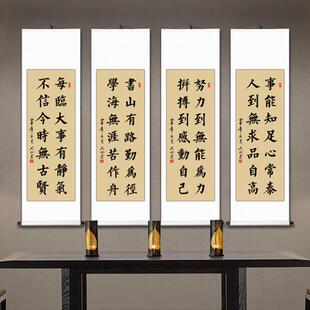 事能知足心常泰
人到無求品自高
努力到無能為力
拼搏到感動自己
書山有路勤為徑
學海無涯苦作舟
每臨大事有靜氣
不信今時無古賢